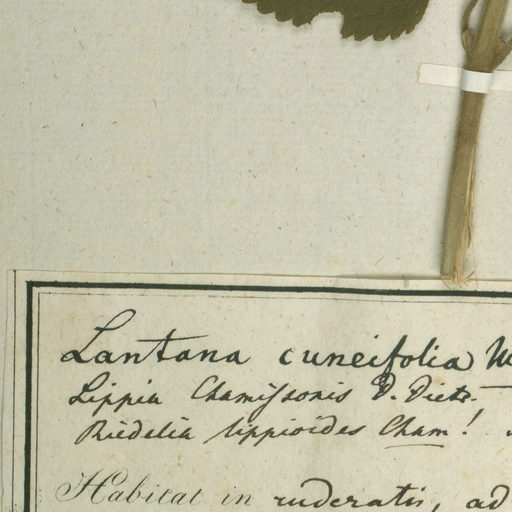 Lantana cuneifolia
Lippia Chamissonis D. Dietr.
Riedelia lippioides Cham!
Habitat in ruderatis, ad